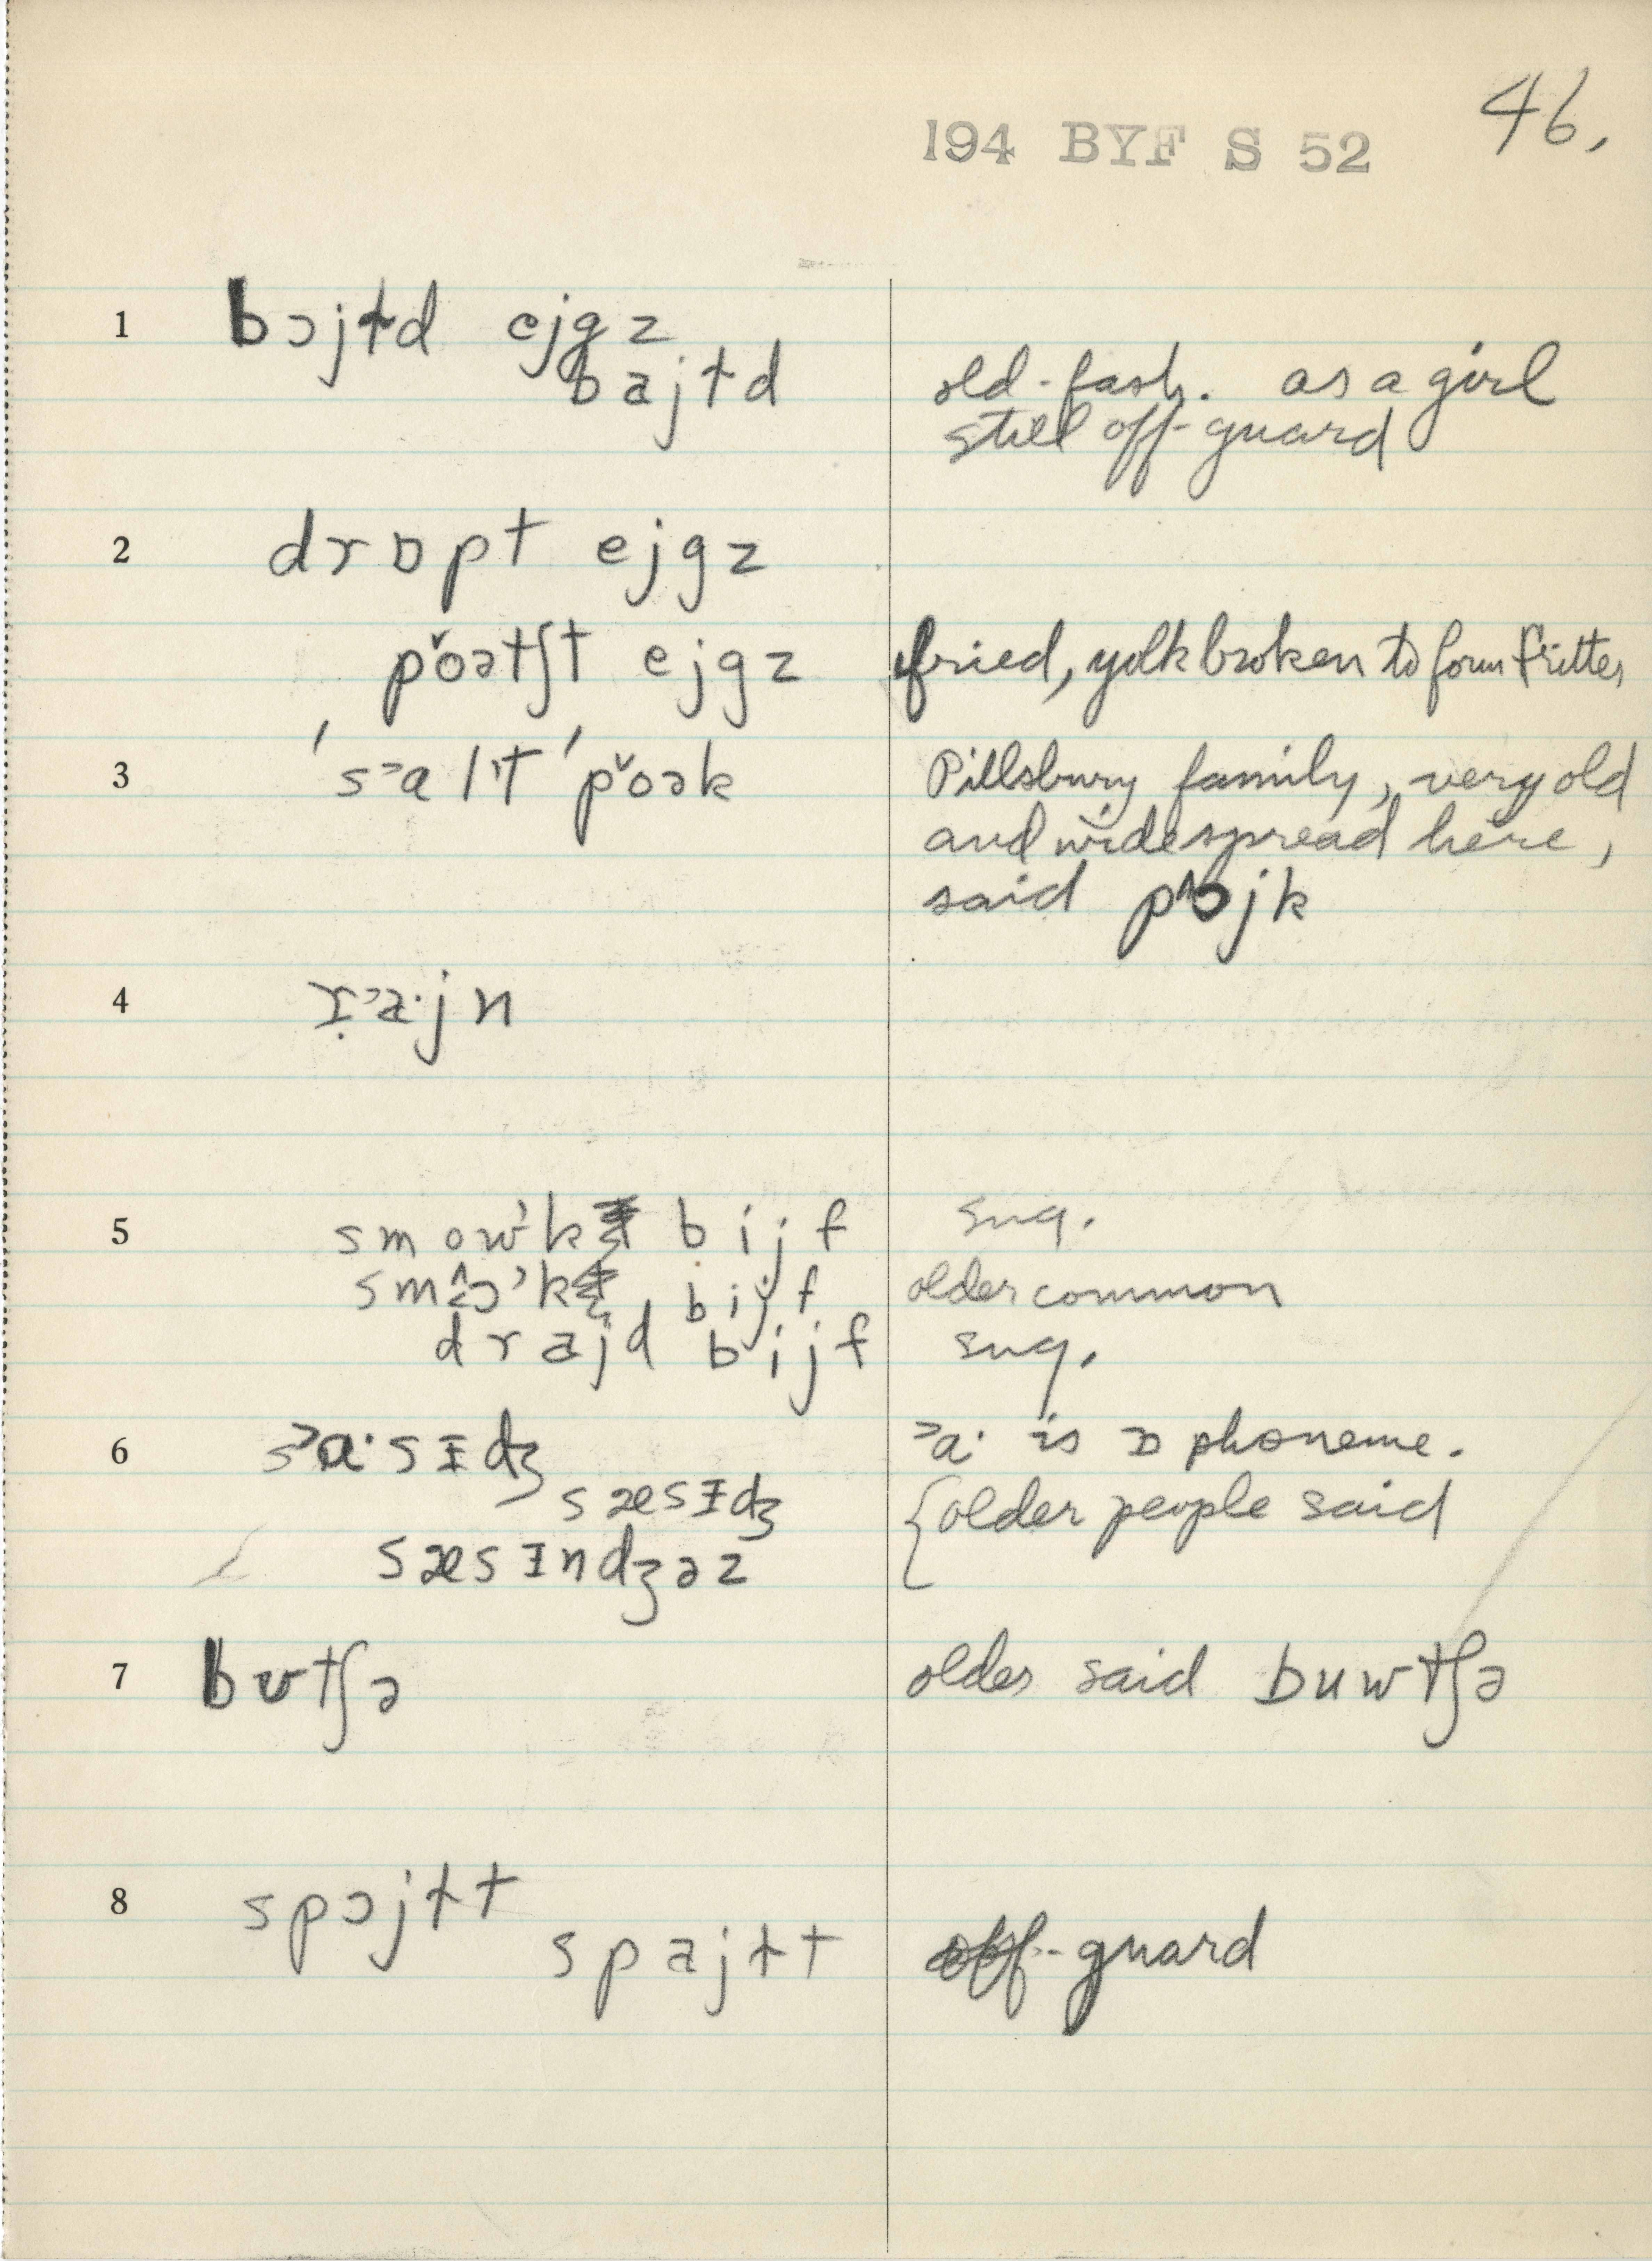 46.
194 BYF S 52
1 bɔjɫd ejgz
bajɫd old-fash. as a girl
still off-guard
2 drɒpt ejgz
pǒətʃt ejgz fried, yolk broken to form fritter
3 's˃alˈt 'pǒək Pillsbury family, very old
and widespread here,
said pɔjk
4 ˃a·jn
5 smow˃k bijf sug.
smɔ˃k bijf older common
drajd bijf sug.
6 s˃a·sɪdʒ ˃a· is ɒ phoneme.
sæsɪdʒ {older people said
sæsɪndʒəz
7 bʊtʃə older said buwtʃə
8 spɔjɫt
spajɫt off-guard